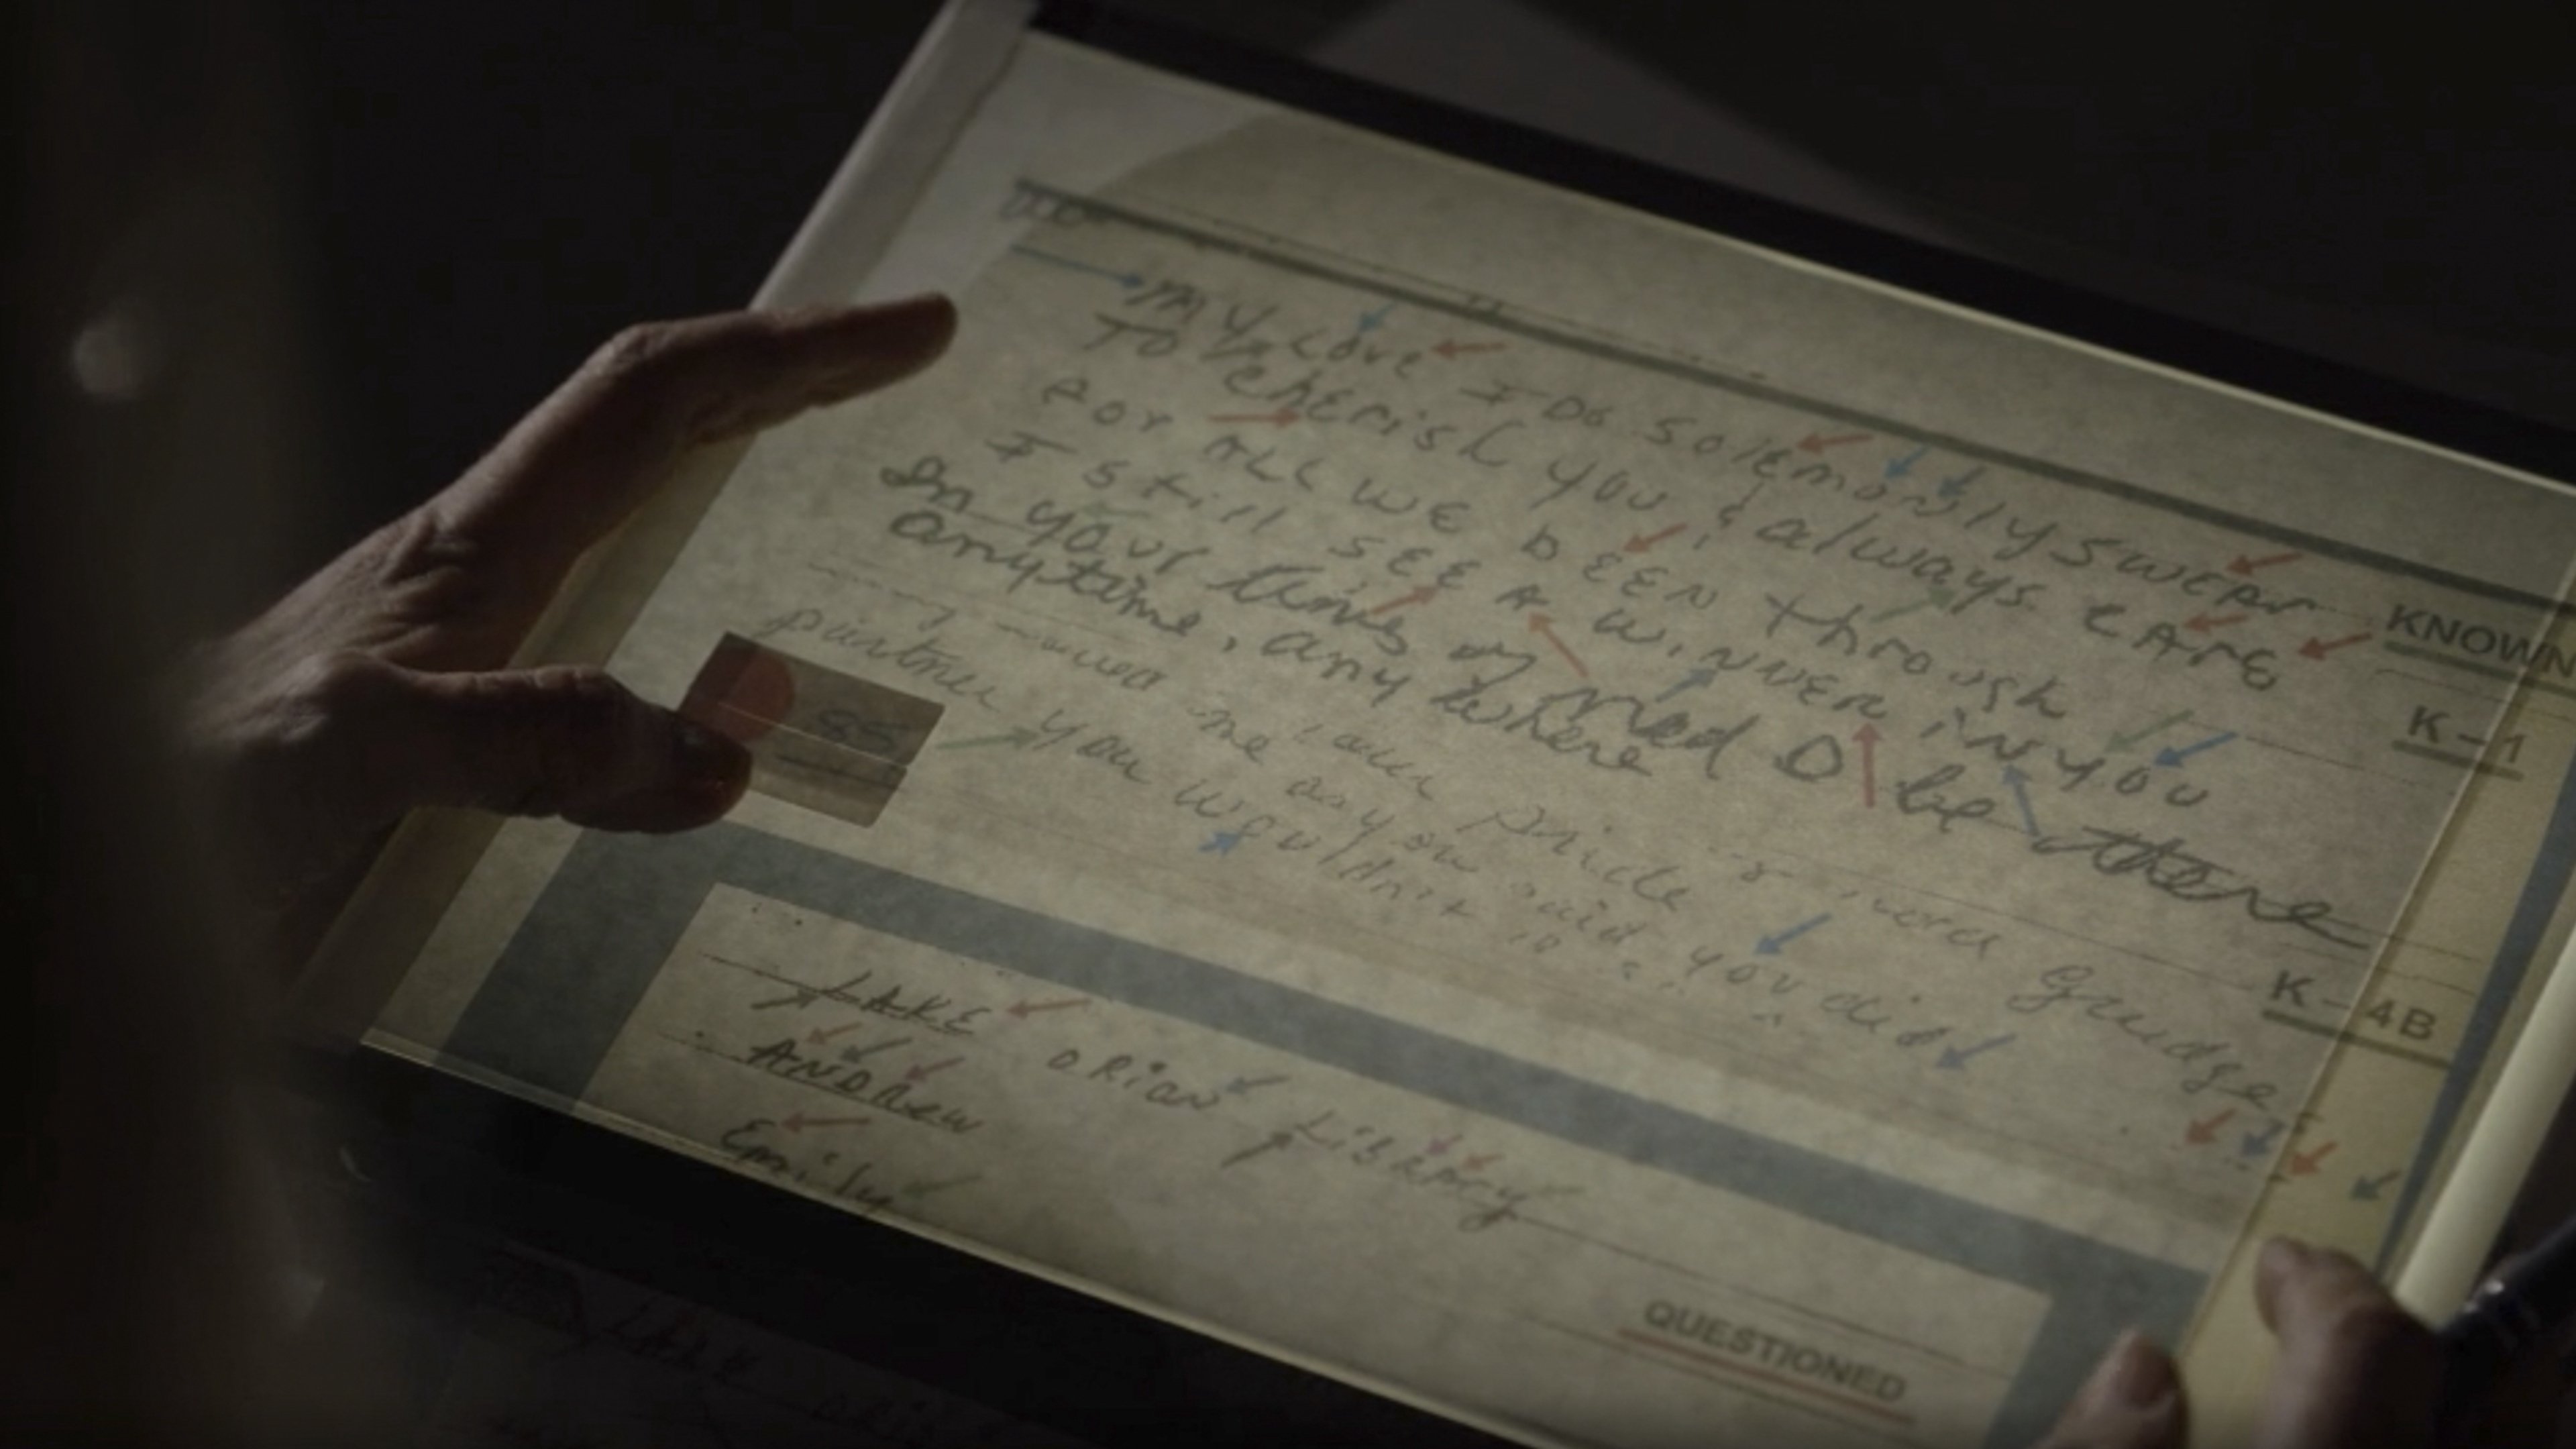 My Love I DO solemonly swEAr
TO chErish you & always cArE
For ALL we bEEN through
I still sEE A wiNNEr iN you
In your time of need I'D be there
anytime, any where
me your pride is more grudge
partner me as you said you did
you wouldn't
85
KNOWN
K-1
K-4B
LAKE ORiAN LiBrAry
ANDRew
Emily
QUESTIONED